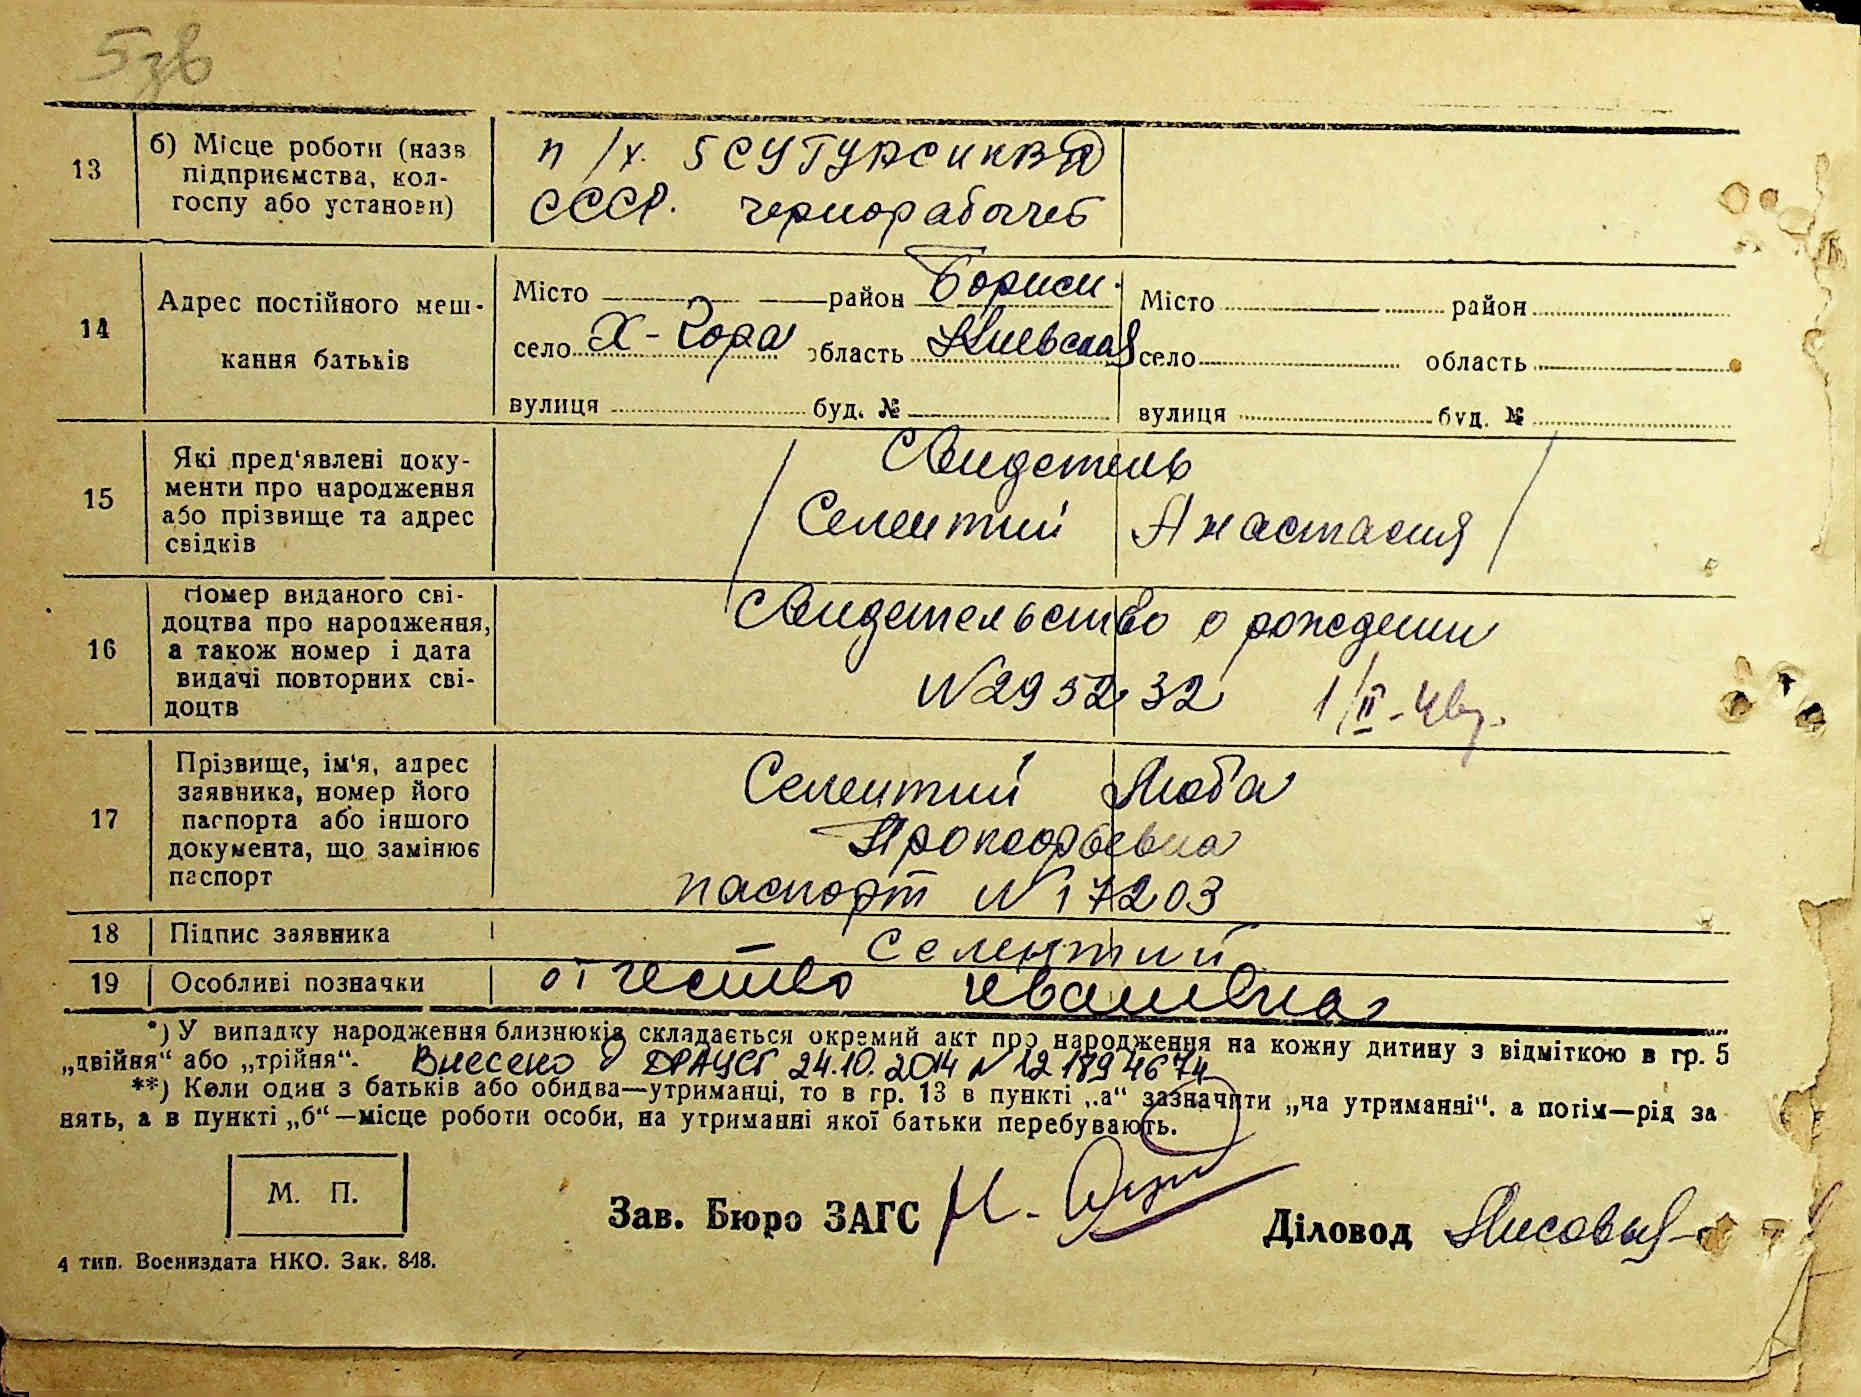 5зв
13
б) Місце роботи (назв
підприємства, кол-
госпу або установи)
п/х. 5 СУ ГУАС НКВД
СССР. чернорабочеб
14
Адрес постійного меш-
кання батьків
Місто район Бориси.
село Х-Гора область Киевская
вулиця буд. №
Місто район
село область
вулиця буд. №
15
Які пред'явлені доку-
менти про народження
або прізвище та адрес
свідків
Свидетель
Селентий Анастасия
16
Номер виданого сві-
доцтва про народження,
а також номер і дата
видачі повторних сві-
доцтв
Свидетельство о рождении
N 295232 1/II-
17
Прізвище, ім'я, адрес
заявника, номер його
паспорта або іншого
документа, що замінює
паспорт
Селентий Люба
Прокофьевна
паспорт N 17203
18 Підпис заявника
Селентий
19 Особливі позначки
отчество Ивановна
*) У випадку народження близнюків складається окремий акт про народження на кожну дитину з відміткою в гр. 5
„двійня“ або „трійня“. Внесено в ДРАЦСГ 24.10.2014 N 12 189 4674
**) Коли один з батьків або обидва—утриманці, то в гр. 13 в пункті „а“ зазначити „на утриманні“. а потім—рід за
нять, а в пункті „б“—місце роботи особи, на утриманні якої батьки перебувають.
М. П.
Зав. Бюро ЗАГС
Діловод Лисовая
4 тип. Воениздата НКО. Зак. 848.